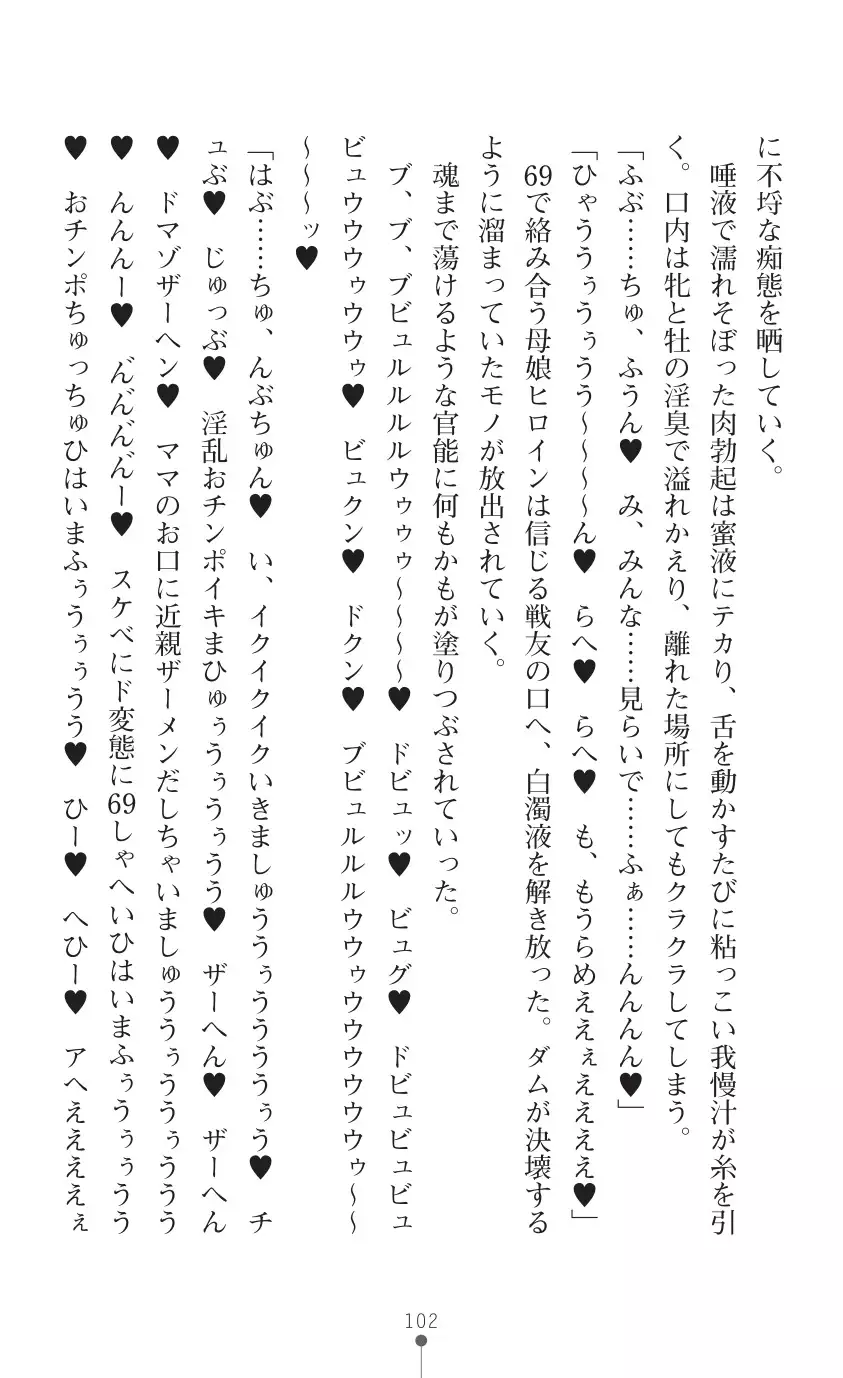 に不埒な痴態を晒していく。
唾液で濡れそぼった肉勃起は蜜液にテカり、舌を動かすたびに粘っこい我慢汁が糸を引
く。口内は牝と牡の淫臭で溢れかえり、離れた場所にしてもクラクラしてしまう。
「ふぶ……ちゅ、ふうん♥　み、みんな……見らいで……ふぁ……んんんん♥」
「ひゃううぅうぅうう～～～～ん♥　らへ♥　らへ♥　も、もうらめええぇええええ♥」
69で絡み合う母娘ヒロインは信じる戦友の口へ、白濁液を解き放った。ダムが決壊する
ように溜まっていたモノが放出されていく。
魂まで蕩けるような官能に何もかもが塗りつぶされていった。
ブ、ブ、ブビュルルルルウゥゥゥ～～～～♥　ドビュッ♥　ビュグ♥　ドビュビュビュ
ビュウウウゥウウゥ♥　ビュクン♥　ドクン♥　ブビュルルルウウゥウウウウウウゥ～～
～～～ッ♥
「はぶ……ちゅ、んぶちゅん♥　い、イクイクイクいきましゅううぅうううぅう♥　チ
ュぶ♥　じゅっぶ♥　淫乱おチンポイキまひゅぅうぅうぅうう♥　ザーへん♥　ザーへん
♥　ドマゾザーヘン♥　ママのお口に近親ザーメンだしちゃいましゅううぅううぅううう
♥　んんんー♥　ん゛ん゛ん゛ん゛ー♥　スケベにド変態に69しゃへいひはいまふぅうぅぅうう
♥　おチンポちゅっちゅひはいまふぅうぅぅうう♥　ひー♥　へひー♥　アへええええぇ
102